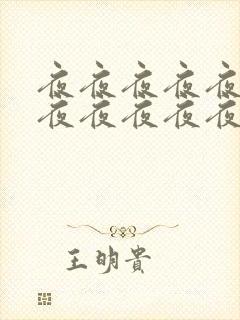 夜夜夜夜夜
夜夜夜夜夜
王明貴